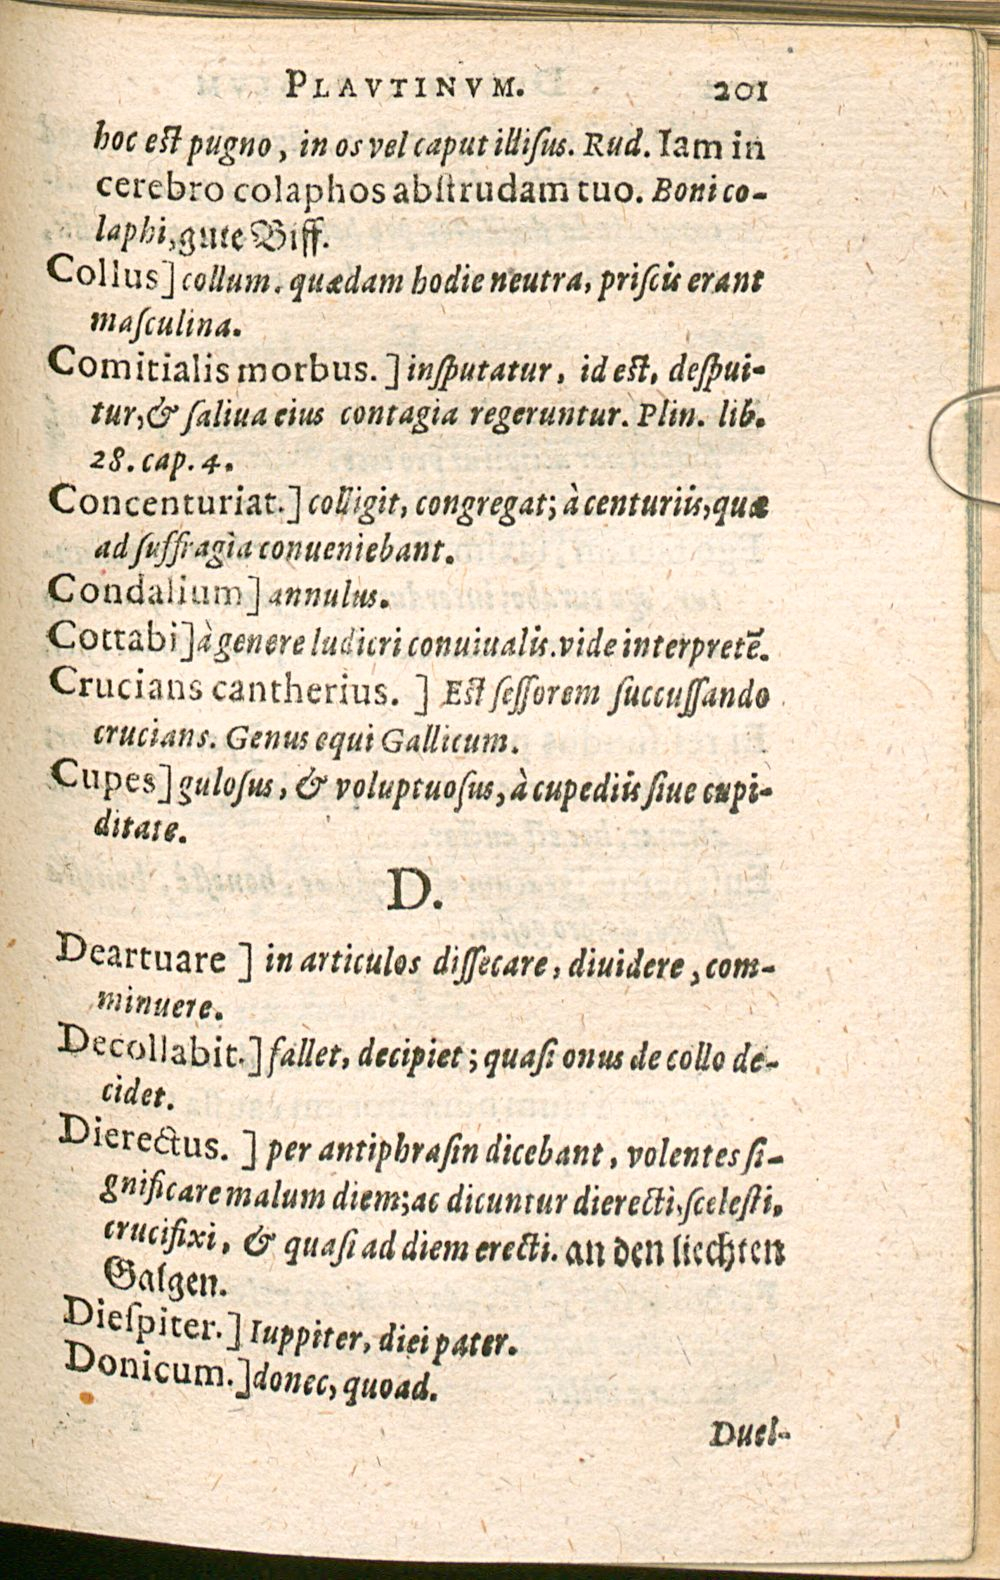 PLAVTINVM. 201
hoc est pugno, in os vel caput illiſus. Rud. Iam in
cerebro colaphos abstrudam tuo. Boni co-
laphi, gute Biff.
Collus] collum. quædam hodie neutra, priſcis erant
maſculina.
Comitialis morbus.] inſputatur, id est, deſpui-
tur, & ſaliua eius contagia regeruntur. Plin. lib.
28. cap. 4.
Concenturiat.] colligit, congregat; à centuriis, quæ
ad ſuffragia conueniebant.
Condalium] annulus.
Cottabi] à genere ludicri conuiualis. vide interpretē.
Crucians cantherius.] Est ſeſſorem ſuccuſſando
crucians. Genus equi Gallicum.
Cupes] guloſus, & voluptuoſus, à cupediis ſiue cupi-
ditate.
D.
Deartuare] in articulos diſſecare, diuidere, com-
minuere.
Decollabit.] fallet, decipiet; quaſi onus de collo de-
cidet.
Dierectus.] per antiphraſin dicebant, volentes ſi-
gnificare malum diem; ac dicuntur dierecti, ſceleſti,
crucifixi, & quaſi ad diem erecti. an den liechten
Galgen.
Dieſpiter.] Iuppiter, diei pater.
Donicum.] donec, quoad.
Duel-